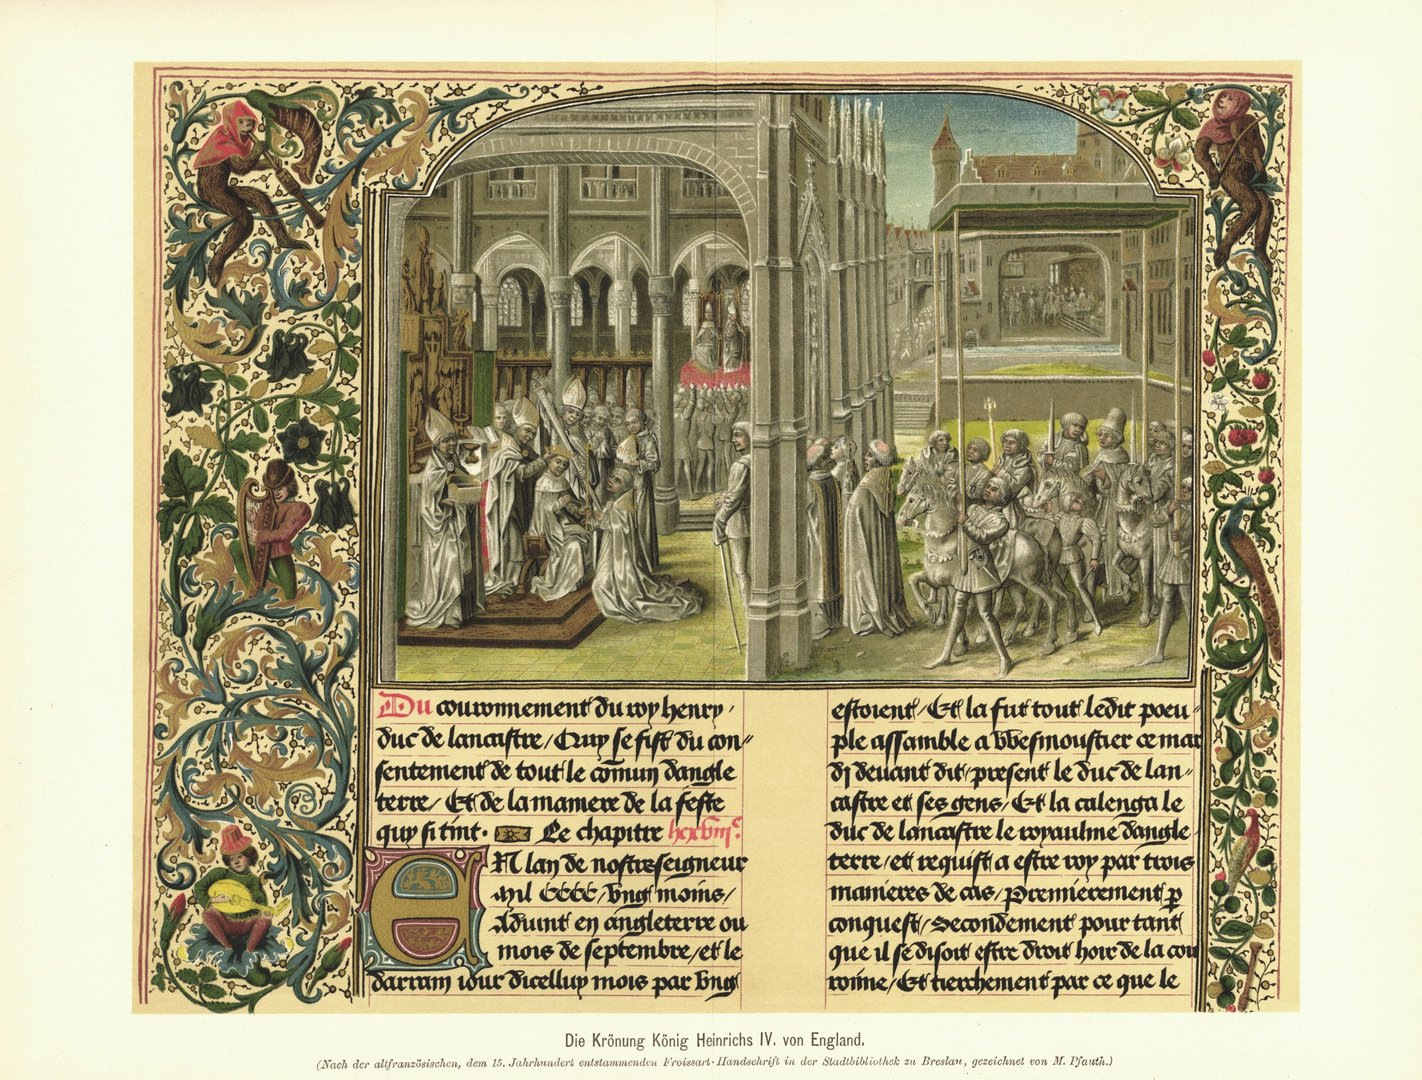 Du couronnement du roy henry,
duc de lancastre / Quy se fist du con〃
sentement de tout le cōmun dangle
terre / Et de la maniere de la feste
quy si tint. Le chapitre
EN lan de nostre seigneur
Mil CCCC / vng moins /
Aduint en angleterre ou
mois de septembre / et le
darrain iour dicelluy mois par vng
estoient / Et la fut tout ledit poeu〃
ple assamble a Wesmoustier ce mar
di deuant dit / present le duc de lan〃
castre et ses gens / Et la calenga le
duc de lancastre le royaulme dangle
terre / et requist a estre roy par trois
manieres de cas / Premierement p
conquest / Secondement pour tant
que il se disoit estre droit hoir de la cou
ronne / Et tierchement par ce que le
Die Krönung König Heinrichs IV. von England.
(Nach der altfranzösischen, dem 15. Jahrhundert entstammenden Froissart-Handschrift in der Stadtbibliothek zu Breslau, gezeichnet von M. Pfauth.)